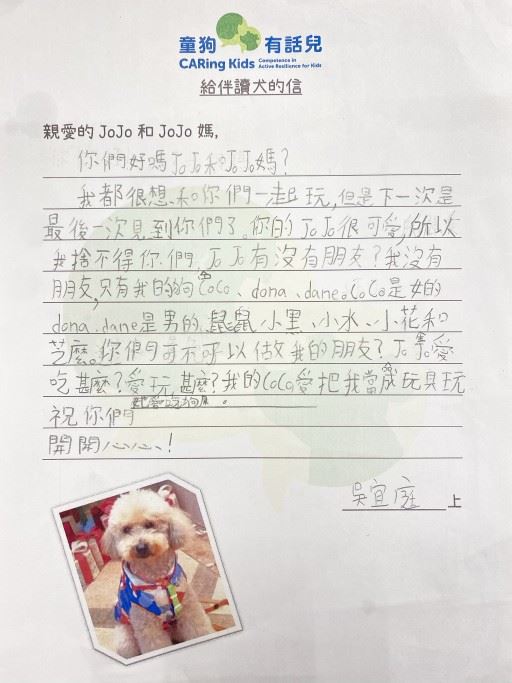 童狗有話兒
CARing Kids Competence in Active Resilience for Kids
給伴讀犬的信
親愛的 JoJo 和 JoJo 媽,
你們好嗎JoJo和JoJo媽?
我都很想和你們一起玩,但是下一次是
最後一次見到你們了。你的JoJo很可愛,所以
我捨不得你們。JoJo有沒有朋友?我沒有
朋友,只有我的狗狗CoCo、dona、dane。CoCo是女的
dona、dane是男的,鼠鼠小黑、小水、小花和
芝麻。你們可不可以做我的朋友?JoJo愛
吃甚麼?愛玩甚麼?我的CoCo愛把我當成玩具玩
愛吃狗。
祝你們
開開心心!
吳宜庭 上